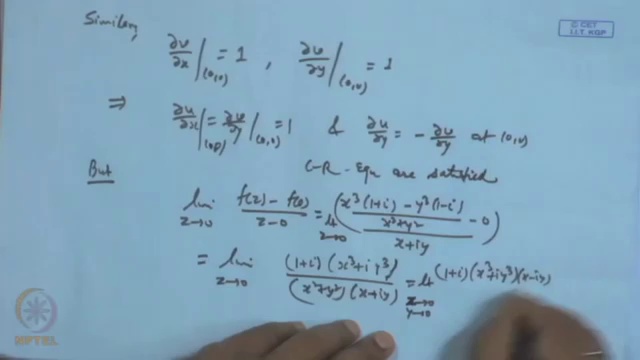 Similarly
∂v/∂x|(0,0) = 1 , ∂v/∂y|(0,0) = 1
⇒ ∂u/∂x|(0,0) = ∂v/∂y|(0,0) = 1 & ∂u/∂y = - ∂v/∂y at (0,0)
C-R-Equ are satisfied
But
lim z→0 f(z) - f(0) / z-0 = lt z→0 ( x³(1+i) - y³(1-i) / x²+y² - 0 / x+iy )
= lim z→0 (1+i)(x³+iy³) / (x²+y²)(x+iy) = lt x→0 y→0 (1+i)(x³+iy³)(x-iy)
© CET
I.I.T. KGP
NPTEL